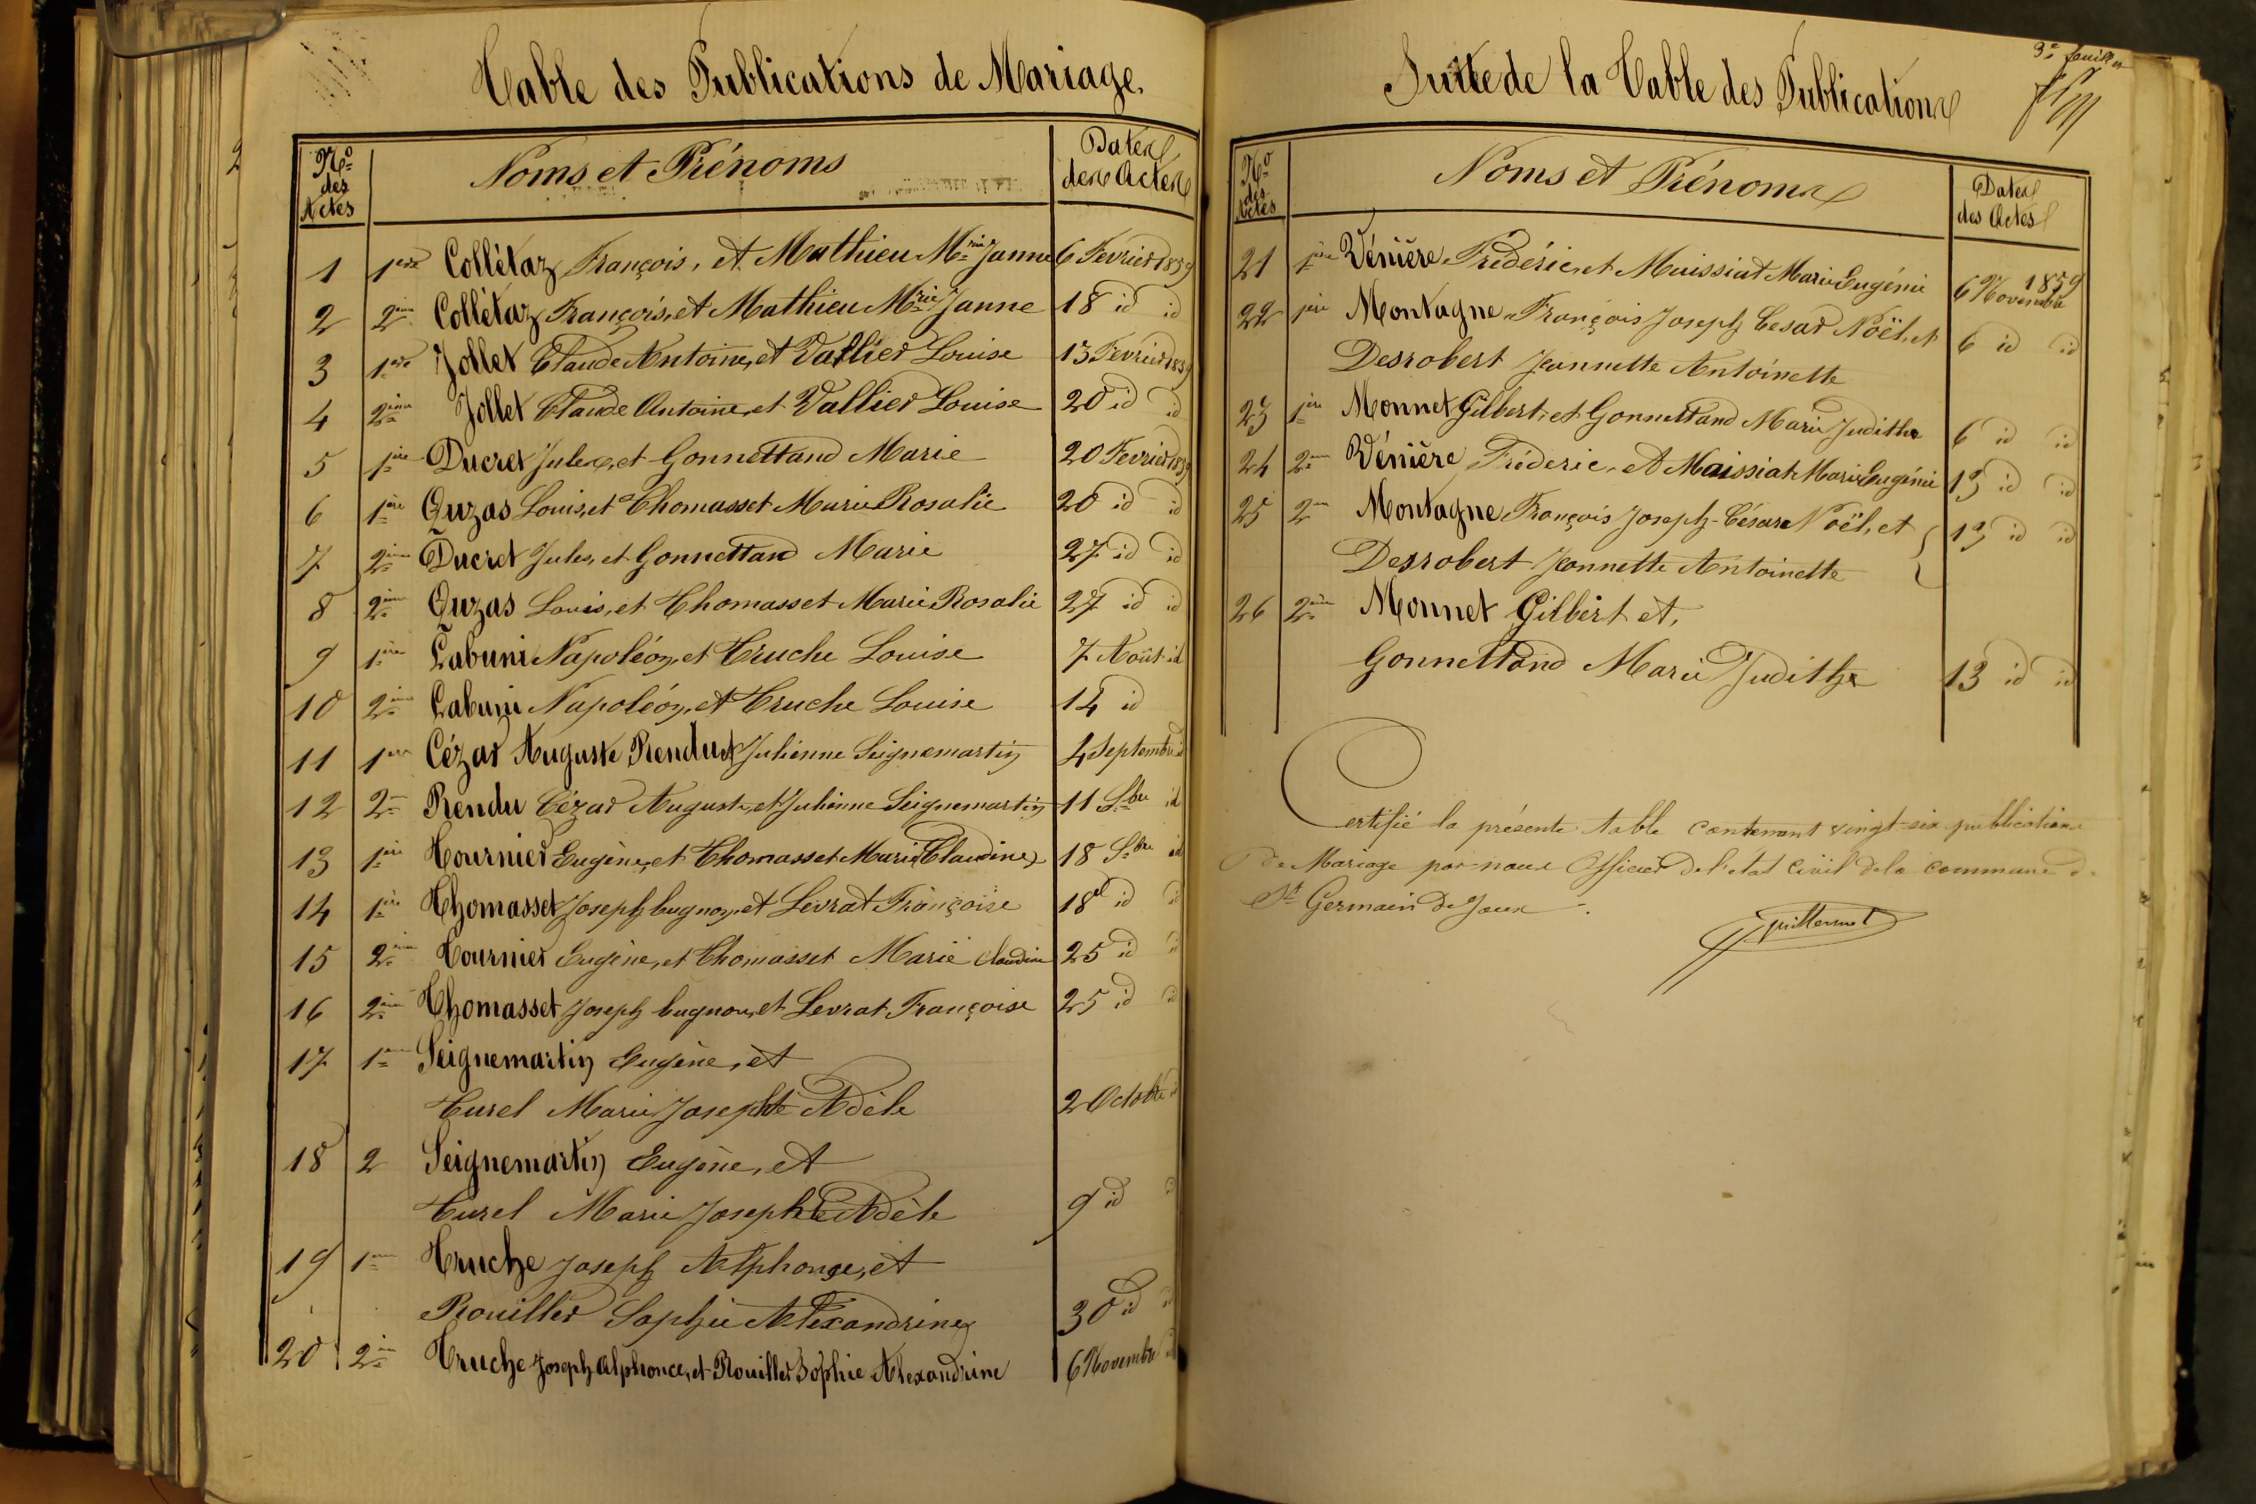 Table des Publications de Mariage.
Nos des Actes
Noms et Prénoms
Dates des Actes
1 1ère Collétaz François, et Mathieu Mrie Janne 6 Fevrier 1859
2 2ème Collétaz François, et Mathieu Mrie Janne 18 id id
3 1ère Jollet Claude Antoine, et Vallier Louise 13 Fevrier 1859
4 2ème Jollet Claude Antoine, et Vallier Louise 20 id id
5 1ère Ducret Jules, et Gonnettand Marie 20 Fevrier 1859
6 1ère Quzas Louis, et Thomasset Marie Rosalie 20 id id
7 2ème Ducret Jules, et Gonnettand Marie 27 id id
8 2ème Quzas Louis, et Thomasset Marie Rosalie 27 id id
9 1ère Labuni Napoléon, et Truche Louise 7 Août id
10 2ème Labuni Napoléon, et Truche Louise 14 id
11 1ère Cézar Auguste Rendu et Julienne Seignemartin 4 Septembre id
12 2me Rendu Cézar Auguste, et Julienne Seignemartin 11 Sbre id
13 1ère Tournier Eugène, et Thomasset Marie Claudine 18 Sbre id
14 1ère Thomasset Joseph bugnon, et Levrat Françoise 18 id id
15 2ème Tournier Eugène, et Thomasset Marie Claudine 25 id id
16 2ème Thomasset Joseph bugnon, et Levrat Françoise 25 id id
17 1ère Seignemartin Eugène, et
Turel Marie Josephte Adèle 2 Octobre id
18 2 Seignemartin Eugène, et
Turel Marie Josephte Adèle 9 id id
19 1ère Truche Joseph Alphonse, et
Rouiller Sophie Alexandrine 30 id id
20 2ème Truche Joseph Alphonce, et Rouiller Sophie Alexandrine 6 Novembre id
3e feuillet
Suite de la Table des Publications
Nos des Actes
Noms et Prénoms
Dates des Actes
21 1ère Vénière Fréderic, et Maissiat Marie Eugénie 6 Novembre 1859
22 1ère Montagne François Joseph Cesar Noël, et 6 id id
Desrobert Jeannette Antoinette
23 1ère Monnet Gilbert, et Gonnettand Marie Judith 6 id id
24 2me Vénière Fréderic, et Maissiat Marie Eugénie 13 id id
25 2me Montagne François Joseph César Noël, et 13 id id
Desrobert Jeannette Antoinette
26 2ème Monnet Gilbert et,
Gonnettand Marie Judith 13 id id
Certifié la présente table contenant vingt-six publications
de Mariage par nous Officier de l'état civil de la commune de
St Germain de Joux.
Guillermet